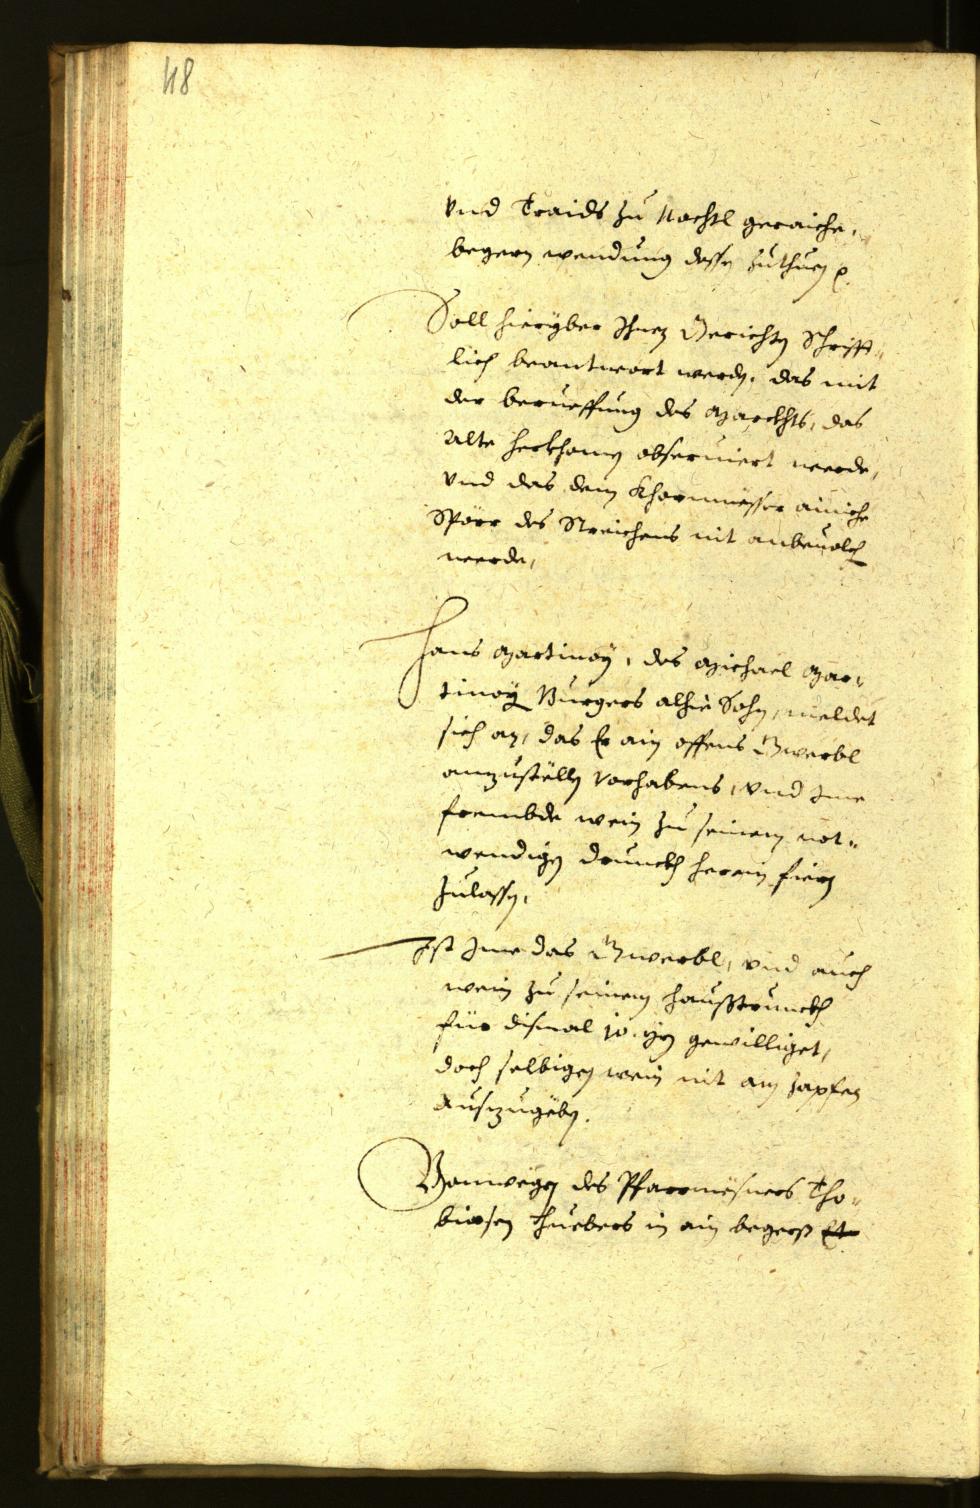 48
vnd Traids zu Nachtl geraiche,
begern wendung dessen zuthuen
Soll hierüber Ihnen Gerichten Schrifft-
lich beantwort werden, das mit
der berueffung des Marckhts, das
Alte herkhomen obseruiert werde,
vnd das dem Khornmesser ainiche
Spörr des Streichens nit anbeuolchen
werde,
Hans Martinoÿ, des Michael Mar-
tinoÿ Burgers alhie Sohn, meldet
sich an, das Er ain offens Gwerbl
anzustellen Vorhabens, vnd Ime
frembde wein zu seinem not-
wendigen drunckh herein fieren
zulassen,
Ist Ime das Gwerbl, vnd auch
wein zu seinem haußtrunckh
für dismal 10 Yrn gewilliget,
doch selbigen wein nit am zapfen
Auszugeben.
Vonwegen des Pfarrmesners Tho-
biasen Huebers in ain begerß